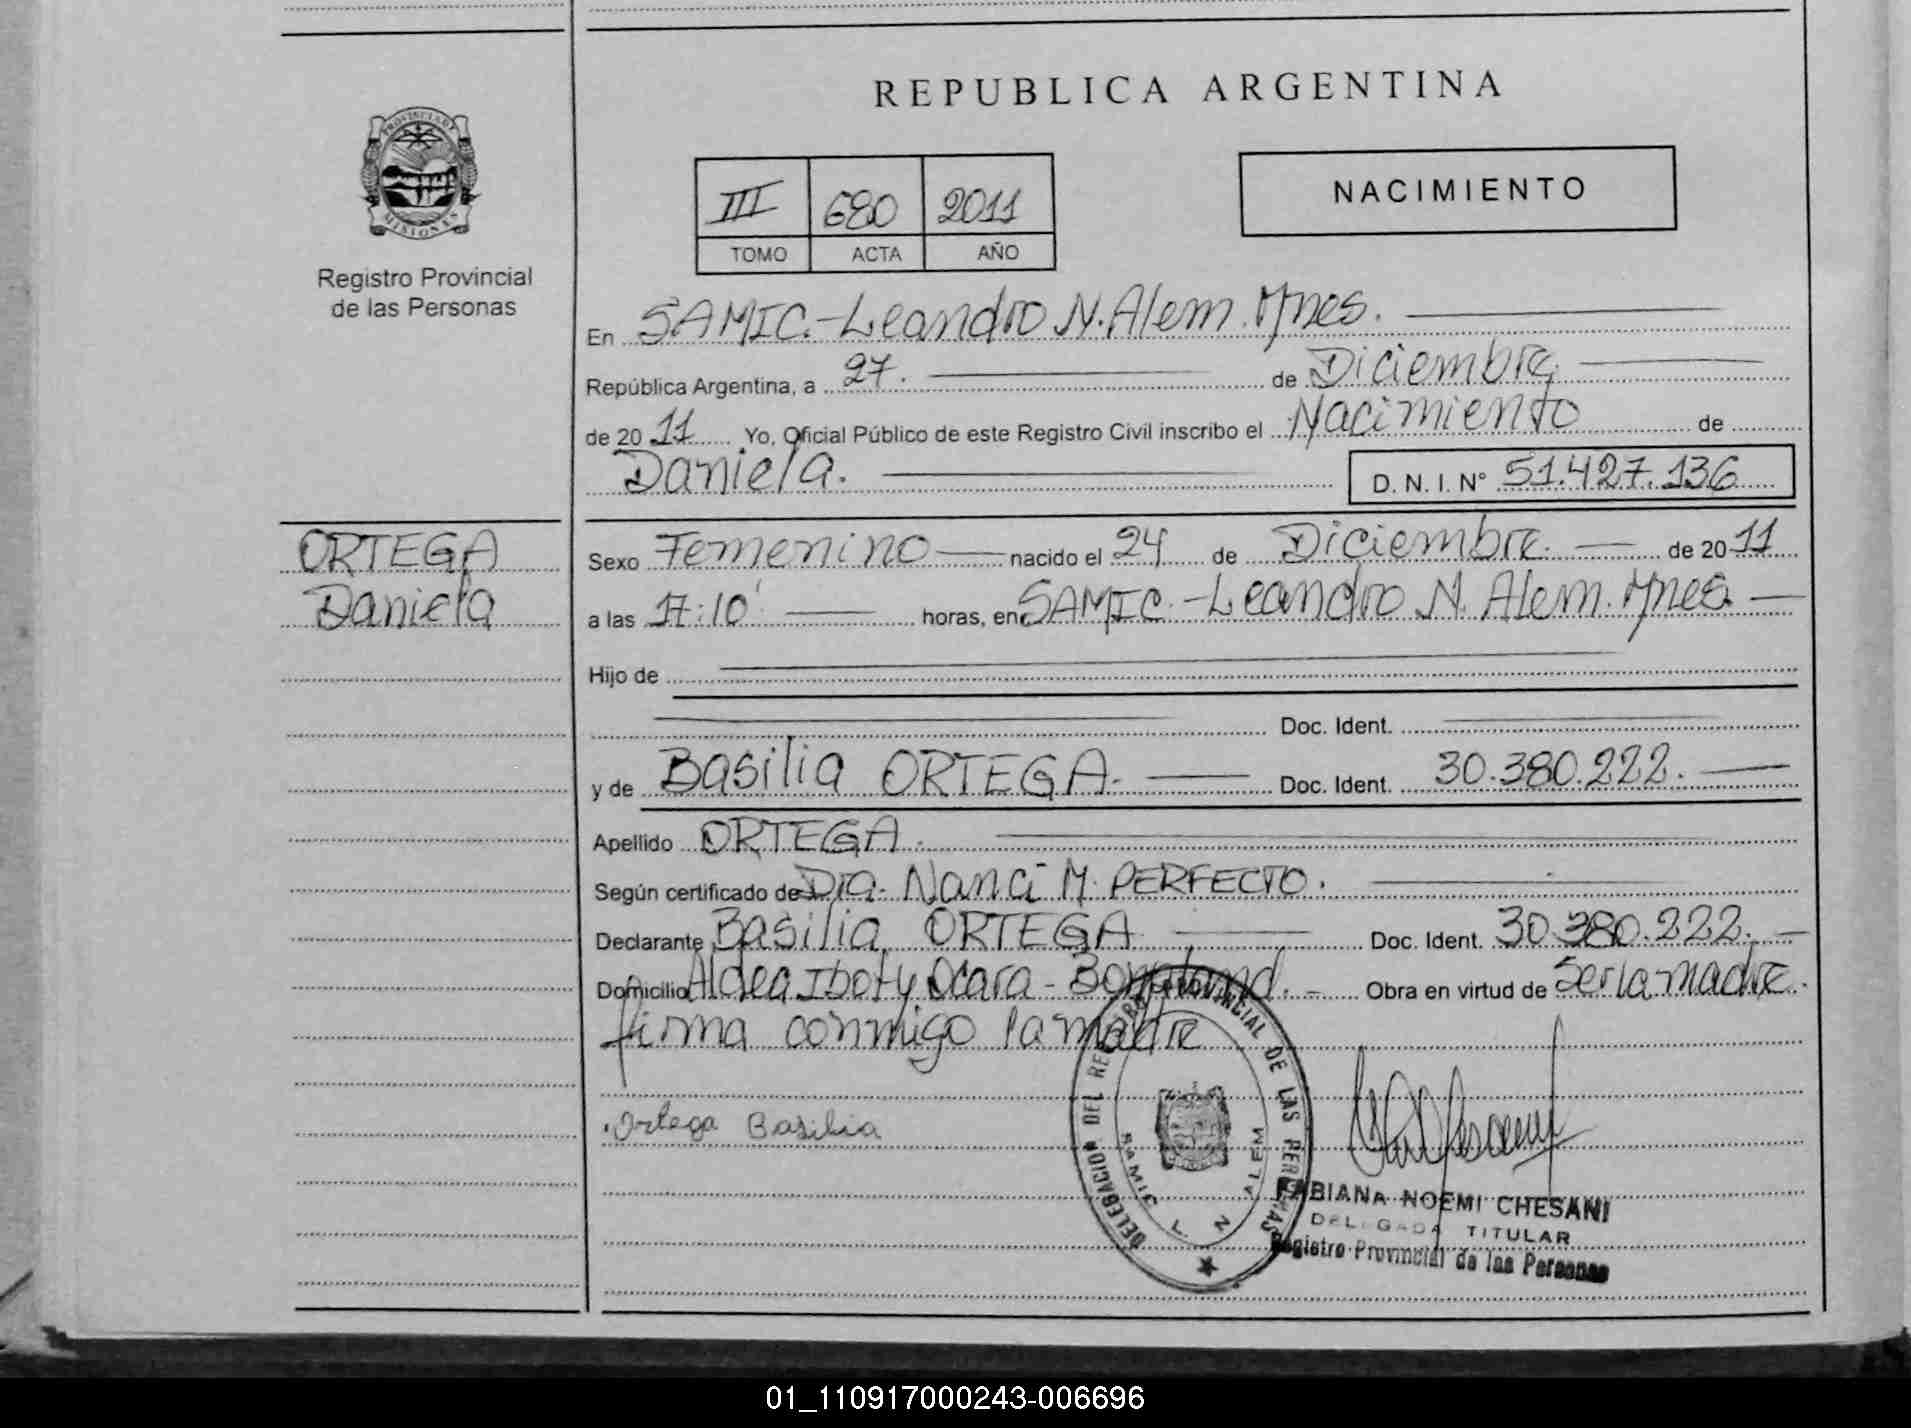 REPUBLICA ARGENTINA
PROVINCIA DE
MISIONES
Registro Provincial
de las Personas
III 680 2011
TOMO ACTA AÑO
NACIMIENTO
En SAMIC.-Leandro N. Alem. Mnes.
República Argentina, a 27. de Diciembre
de 2011 Yo, Oficial Público de este Registro Civil inscribo el Nacimiento de
Daniela. D. N. I. N° 51.427.136
ORTEGA
Daniela
Sexo Femenino nacido el 24 de Diciembre. de 2011
a las 17:10' horas, en SAMIC.-Leandro N. Alem. Mnes.
Hijo de
Doc. Ident.
y de Basilia ORTEGA. Doc. Ident. 30.380.222.
Apellido ORTEGA.
Según certificado de Dra. Nanci M. PERFECTO.
Declarante Basilia ORTEGA Doc. Ident. 30.380.222.
Domicilio Aldea Iboty Ocara - Bonpland. Obra en virtud de Ser la madre.
firma conmigo la madre
Ortega Basilia
DELEGACION DEL REGISTRO PROVINCIAL DE LAS PERSONAS
SAMIC L N ALEM
FABIANA NOEMI CHESANI
DELEGADA TITULAR
Registro Provincial de las Personas
01_110917000243-006696